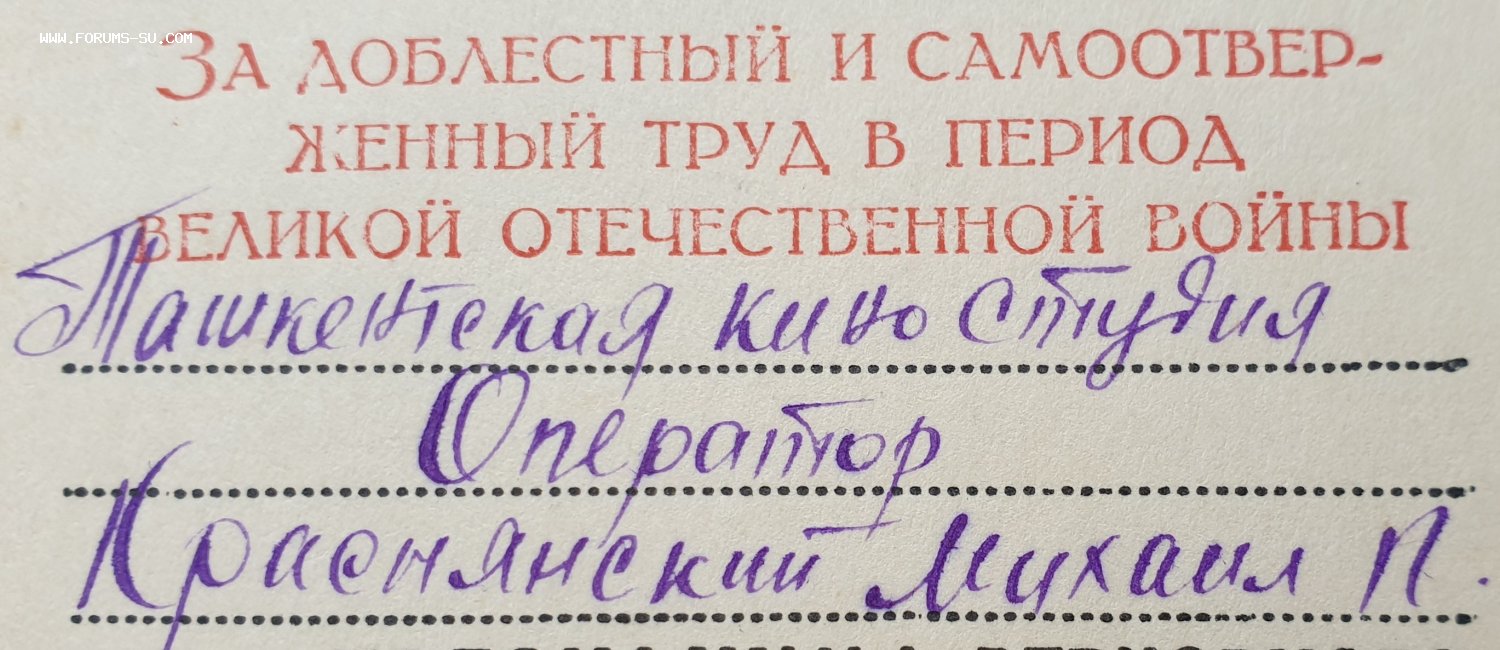 www.forums-su.com
За доблестный и самоотвер-
женный труд в период
Великой Отечественной войны
Ташкентская киностудия
Оператор
Краснянский Михаил П.